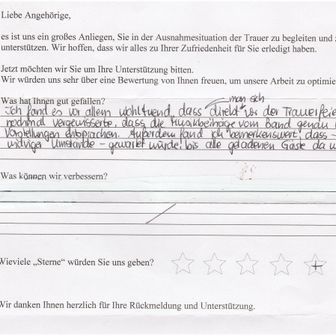 Liebe Angehörige,
es ist uns ein großes Anliegen, Sie in der Ausnahmesituation der Trauer zu begleiten und z
unterstützen. Wir hoffen, dass wir alles zu Ihrer Zufriedenheit für Sie erledigt haben.
Jetzt möchten wir Sie um Ihre Unterstützung bitten.
Wir würden uns sehr über eine Bewertung von Ihnen freuen, um unsere Arbeit zu optimie
Was hat Ihnen gut gefallen?
man sich
Ich fand es vor allem wohltuend, dass direkt vor der Trauerfeie
nochmal vergewisserte, dass die Musikbeiträge vom Band genau
Vorstellungen entsprachen. Außerdem fand ich bemerkenswert, dass -
widriger Umstände - gewartet wurde bis alle geladenen Gäste da w
Was können wir verbessern?
Wieviele „Sterne" würden Sie uns geben?
Wir danken Ihnen herzlich für Ihre Rückmeldung und Unterstützung.